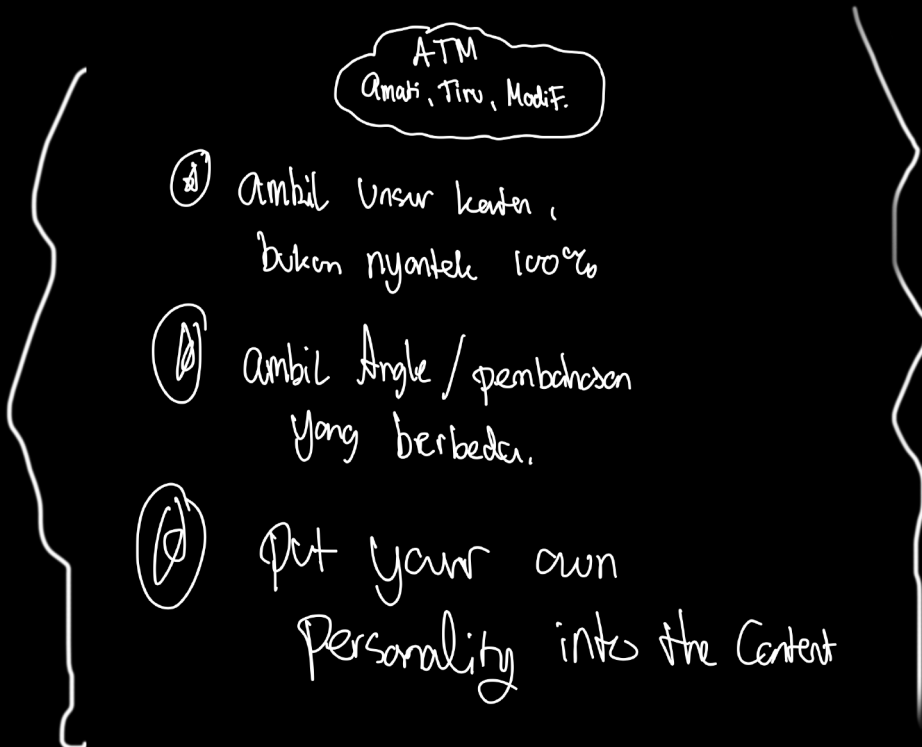 ATM
Amati, Tiru, Modif.
ambil unsur konten,
bukan nyontek 100%
ambil Angle / pembahasan
yang berbeda.
put your own
personality into the Content